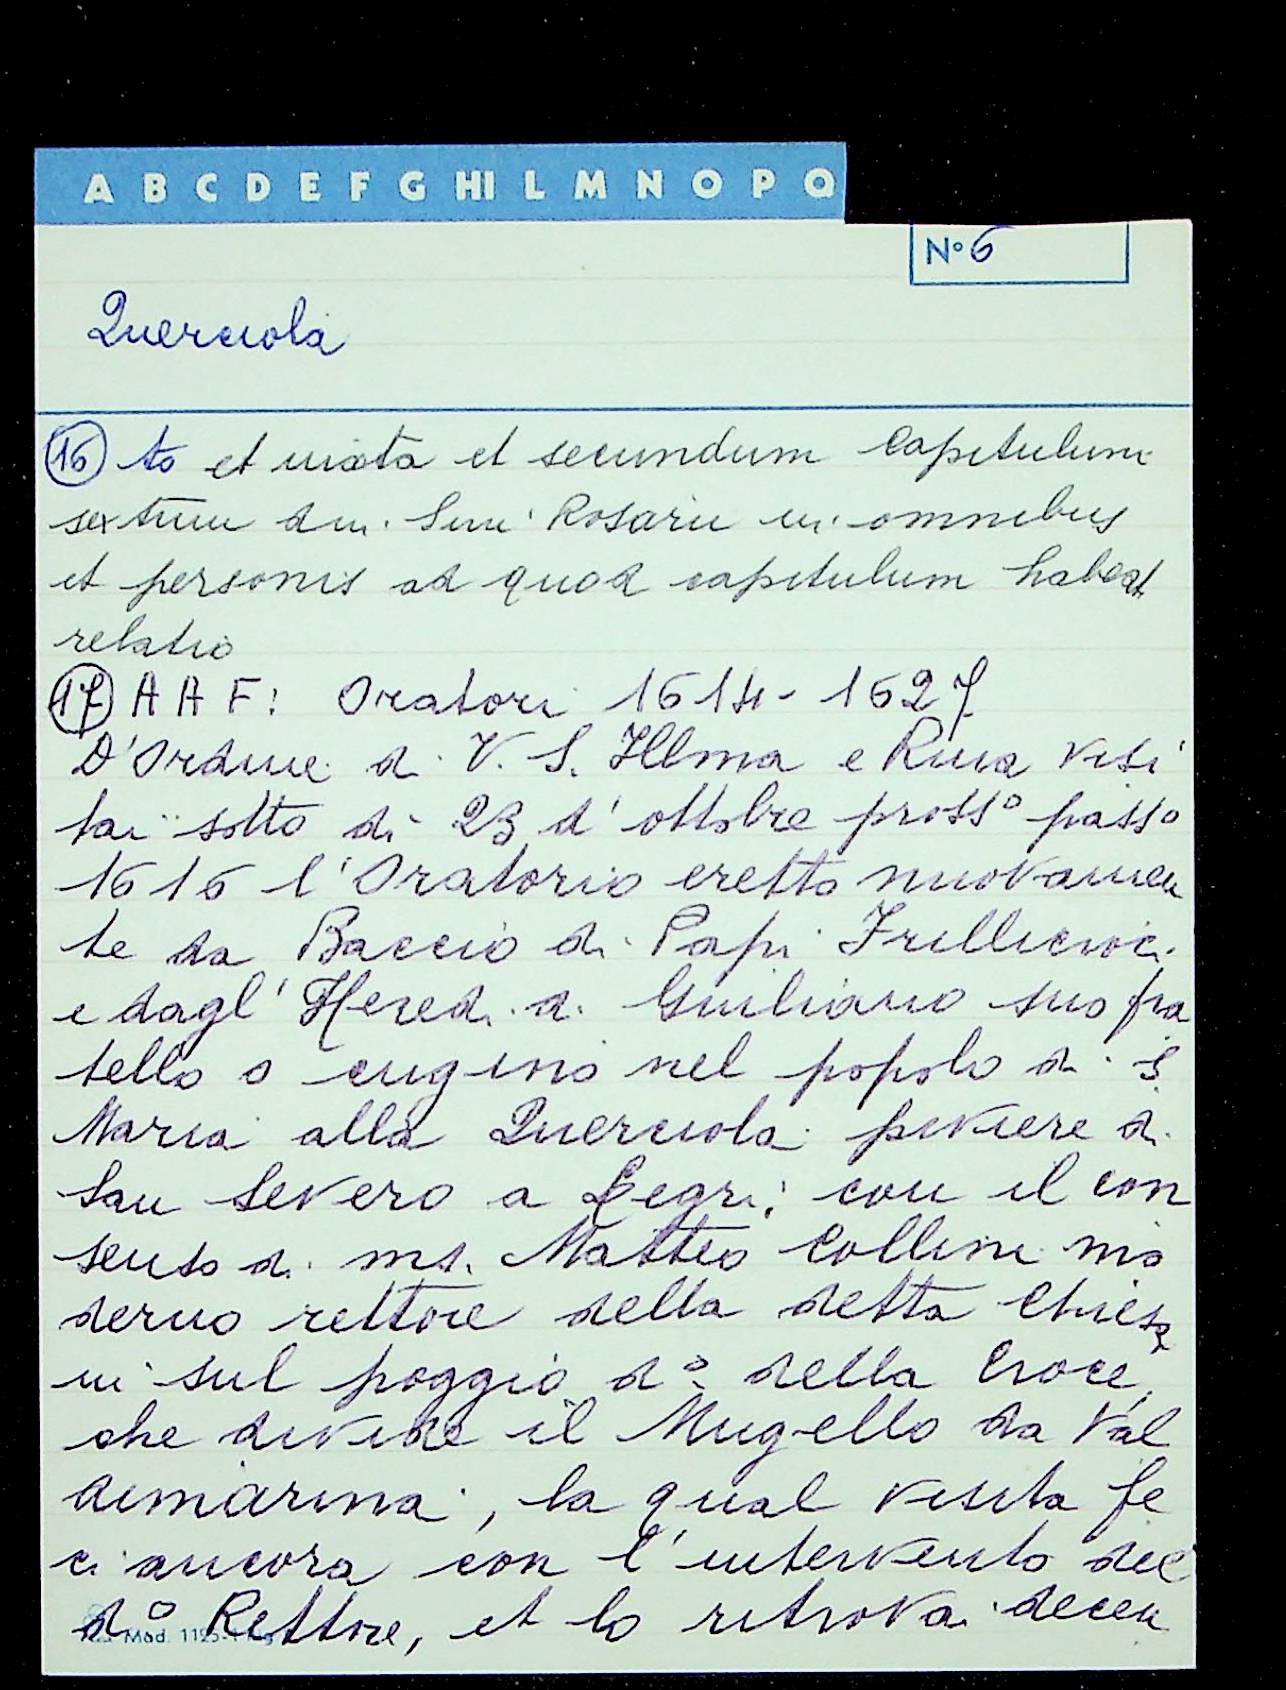 A B C D E F G HI L M N O P Q
N° 6
Querciola
16 to et iuxta et secundum Capitulum
sextum dni Smi Rosarii in omnibus
et personis ad quod capitulum habeat
relatio
17 A A F: Oratori 1614-1627
D'Ordine di V. S. Illma e Rma visi
tai sotto dì 23 d'ottobre pross° pass°
1616 l'Oratorio eretto nuovamen
te da Baccio di Papi Frillicioci
e dagl'Heredi di Giuliano suo fra
tello o cugino nel popolo di S.
Maria alla Querciola piviere di
San Severo a Legri; con il con
senso di ms. Matteo Collini mo
derno rettore della detta Chiesa
in sul poggio d° della Croce,
che divide il Mugello da Val
dimarina, la qual visita fe
ci ancora con l'intervento del
d° Rettore, et lo ritrovai decen
Mod. 1195